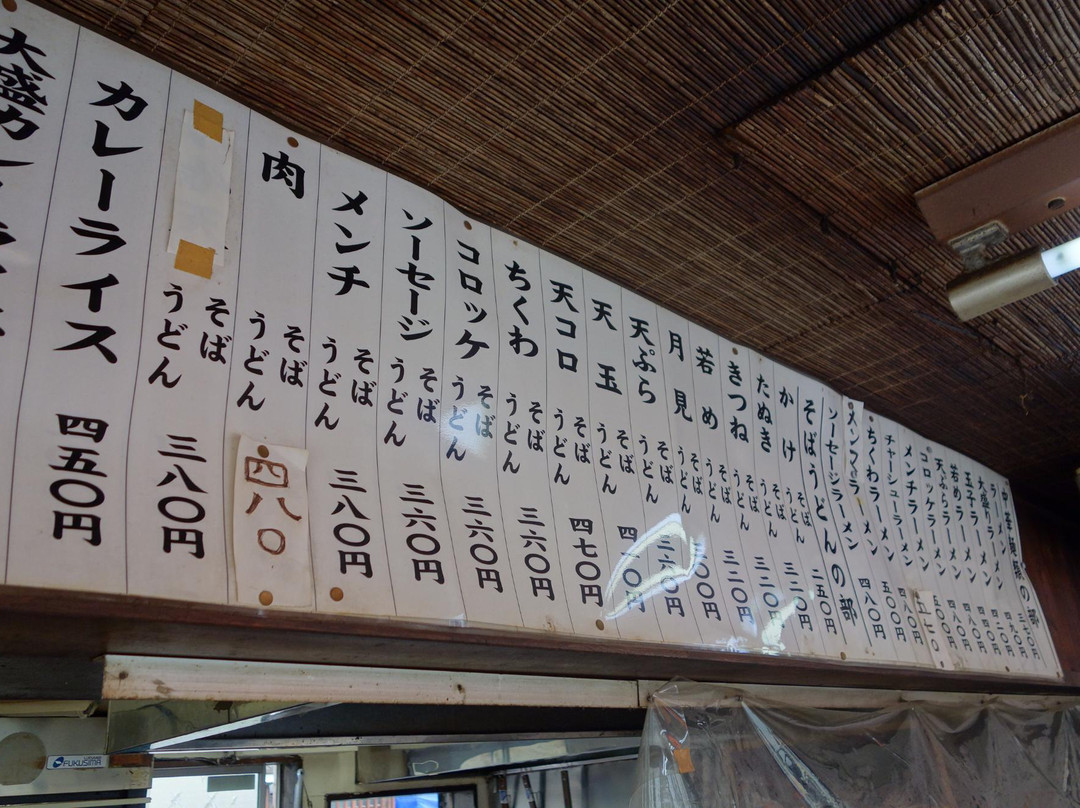 中華麺類の部
ラーメン
大盛ラーメン
玉子ラーメン
若めラーメン
天ぷらラーメン
コロッケラーメン
メンチラーメン
チャーシューラーメン
ちくわラーメン
メンマラーメン
ソーセージラーメン 四八〇円
そばうどんの部
かけ そば うどん 二五〇円
たぬき そば うどん 三二〇円
きつね そば うどん 三二〇円
若め そば うどん 三二〇円
月見 そば うどん 〇〇円
天ぷら そば うどん 三六〇円
天玉 そば うどん 〇円
天コロ そば うどん 四七〇円
ちくわ そば うどん 三六〇円
コロッケ そば うどん 三六〇円
ソーセージ そば うどん 三六〇円
メンチ そば うどん 三八〇円
肉 そば うどん 四八〇
そば うどん 三八〇円
カレーライス 四五〇円
大盛カレーライス
FUKUSIMA